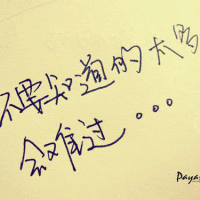 不要知道的太多
会难过。。。
Paya